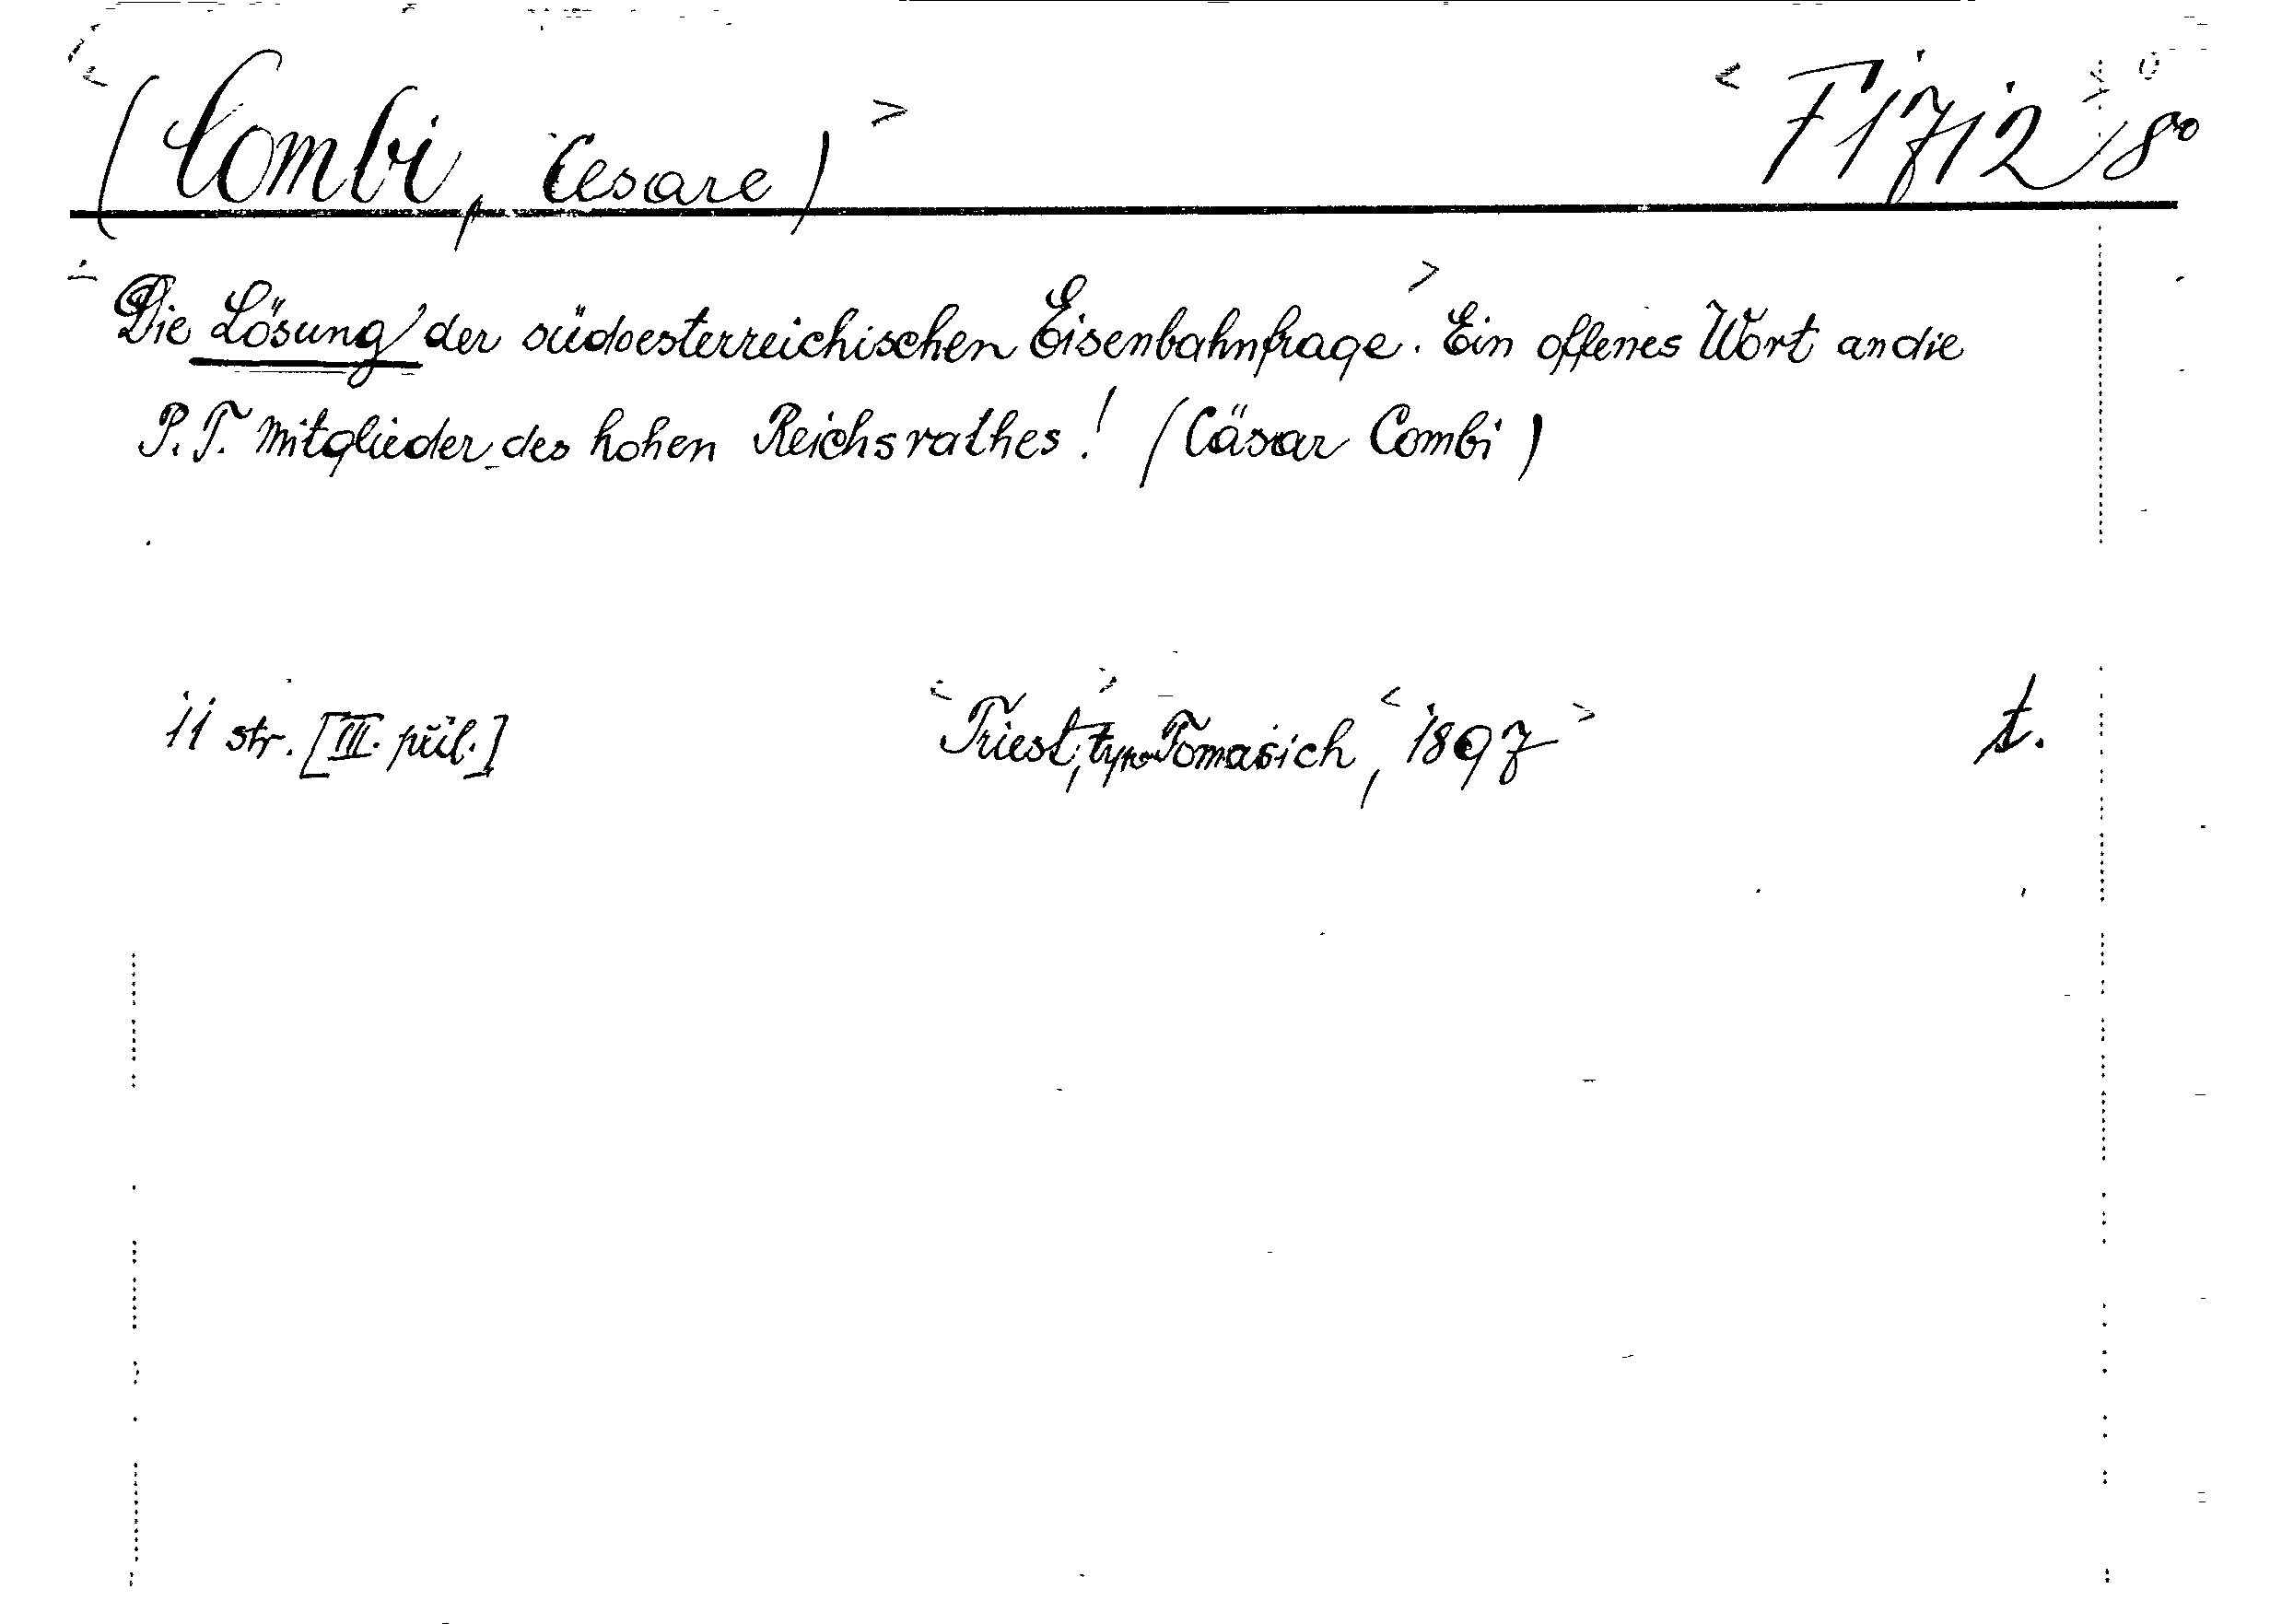 <(Combi, Cesare)> <F 1712> 8°
<Die Lösung der südoesterreichischen Eisenbahnfrage.> Ein offenes Wort an die
P. T. Mitglieder des hohen Reichsrathes! (Cäsar Combi)
11 str. [III. příl.] <Triest,> typ. Tomasich, <1897> t.